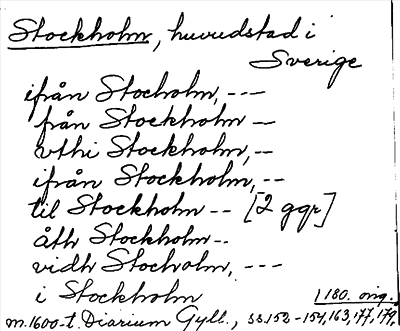 Stockholm, huvudstad i
Sverige
ifrån Stocholm, ---
från Stockholm --
vthi Stockholm, --
ifrån Stockholm, --
til Stockholm -- [2 ggr]
åth Stockholm --
vidh Stocholm, ---
i Stockholm
1180. orig.
m. 1600-t. Diarium Gyll., ss. 152-154, 163, 177, 179.